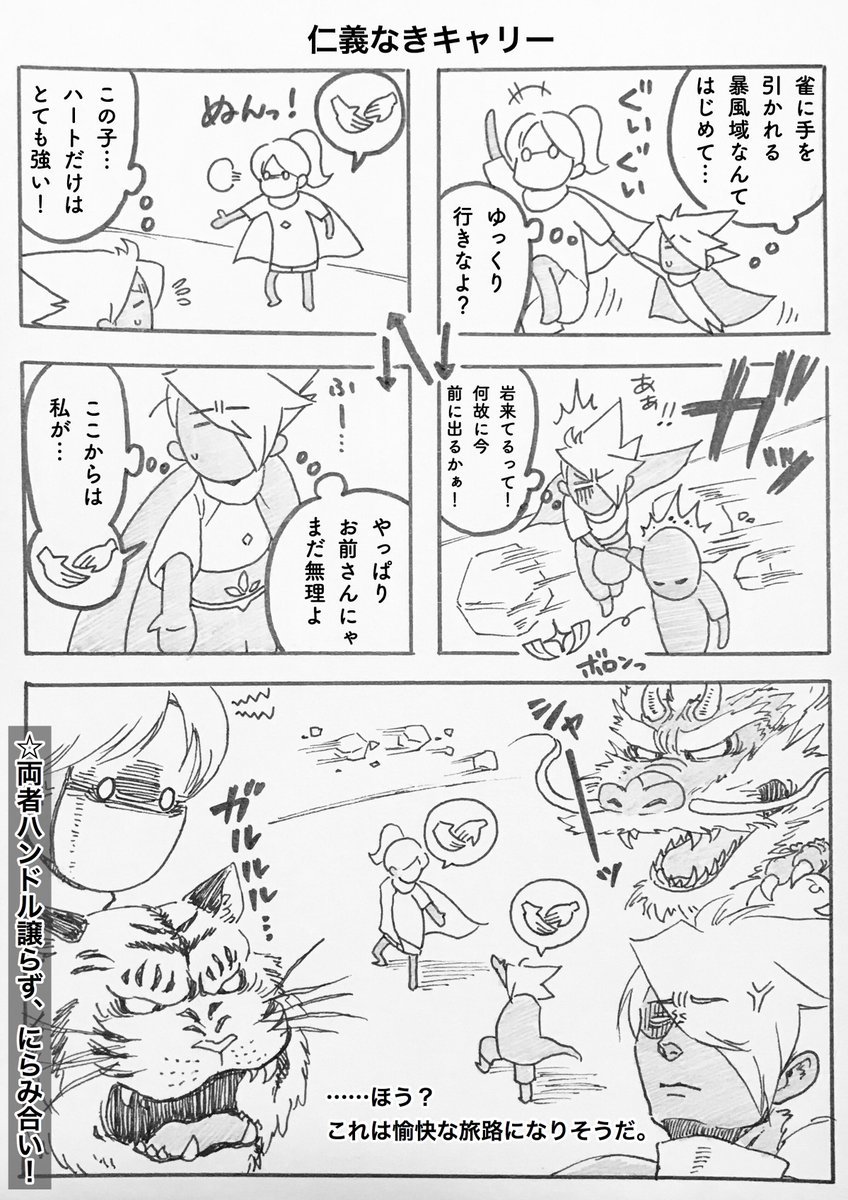 仁義なきキャリー
雀に手を
引かれる
暴風域なんて
はじめて…
ぐいぐい
ゆっくり
行きなよ?
ガッ
あぁ!!
岩来てるって!
何故に今
前に出るかぁ!
ボロンっ
ぬんっ!
この子…
ハートだけは
とても強い!
ふー…
やっぱり
お前さんにゃ
まだ無理よ
ここからは
私が…
シャーッ
ガルルル…
……ほう?
これは愉快な旅路になりそうだ。
☆両者ハンドル譲らず、にらみ合い!